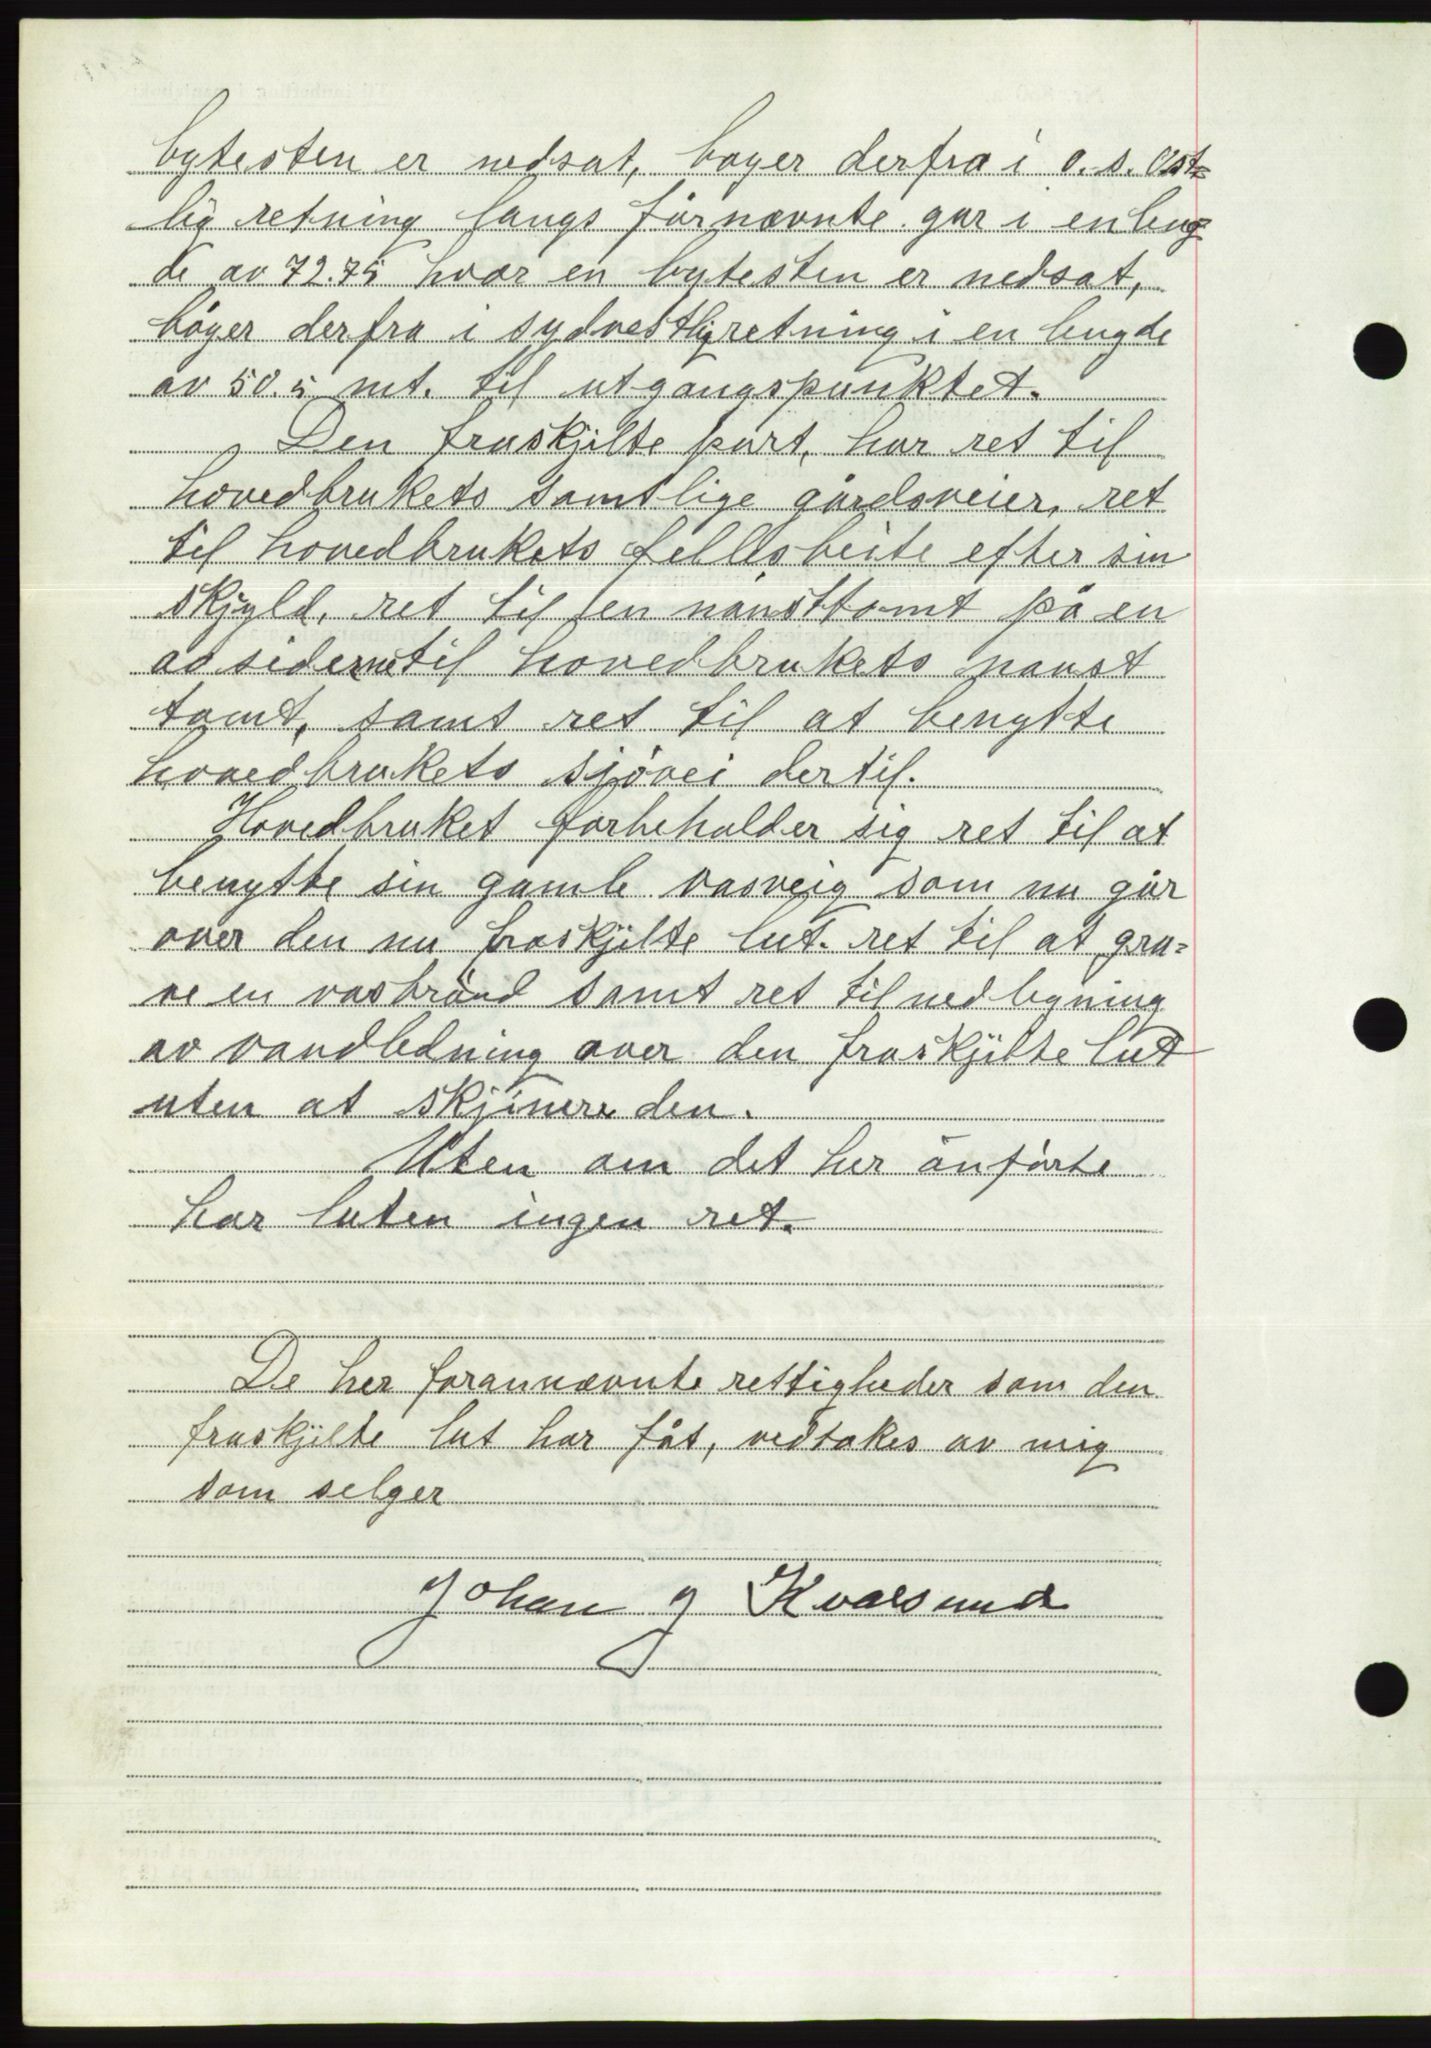 bytesten er nedsat, bøyer derfra i o. s. Øst=
lig retning langs førnævnte gar i en leng
de av 72.75 hvor en bytesten er nedsat,
bøyer derfra i sydvestligretning i en lengde
av 50.5 mt. til utgangspunktet.
Den fraskjilte part, har ret til
hovedbrukets samtlige gårdsveier, ret
til hovedbrukets fellesbeite efter sin
skjyld, ret til en nausttomt på en
av siderne til hovedbrukets naust
tomt, samt ret til at benytte
hovedbrukets sjøvei dertil.
Hovedbruket forbeholder sig ret til at
benytte sin gamle vasveig som nu går
over den nu fraskjilte lut. ret til at gra=
ve en vasbrønd samt ret til nedlegning
av vandledning over den fraskjilte lut
uten at skjinere den.
Uten om det her anførte
har luten ingen ret.
De her forannævnte rettigheder som den
fraskjilte lut har fåt, vedtakes av mig
som selger
Johan J Kvalsund